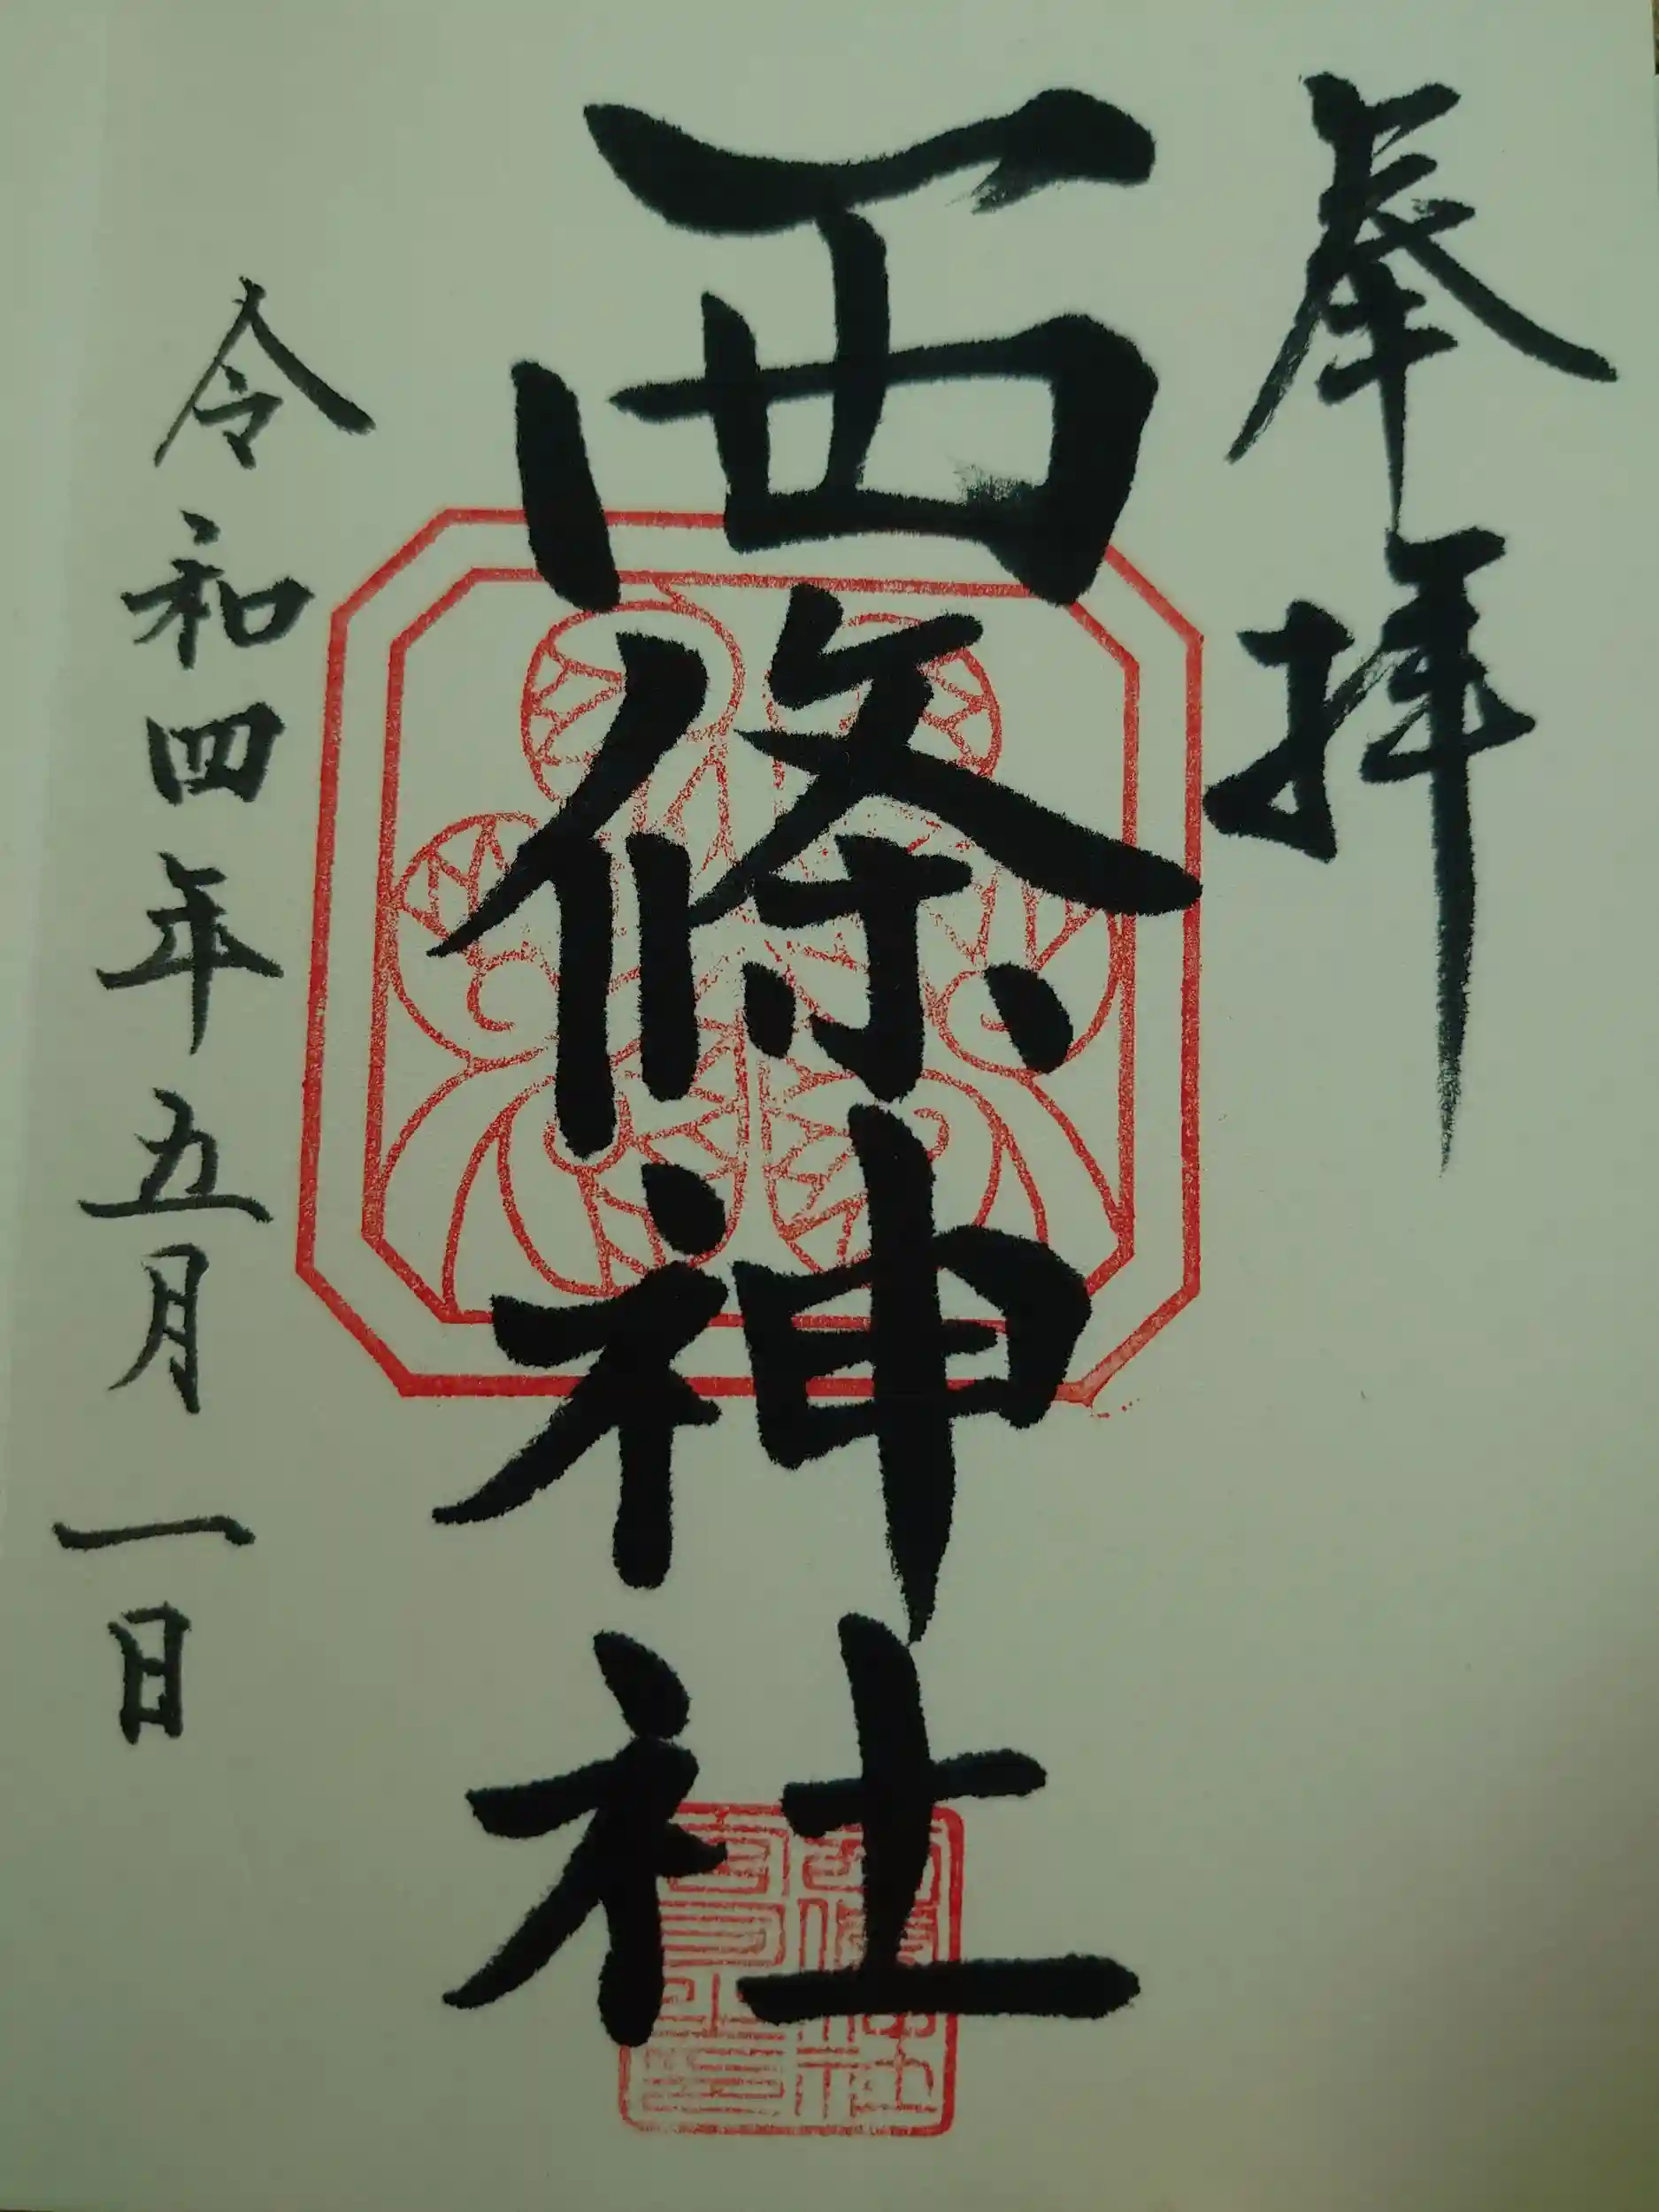 奉拝
西條神社
令和四年五月一日